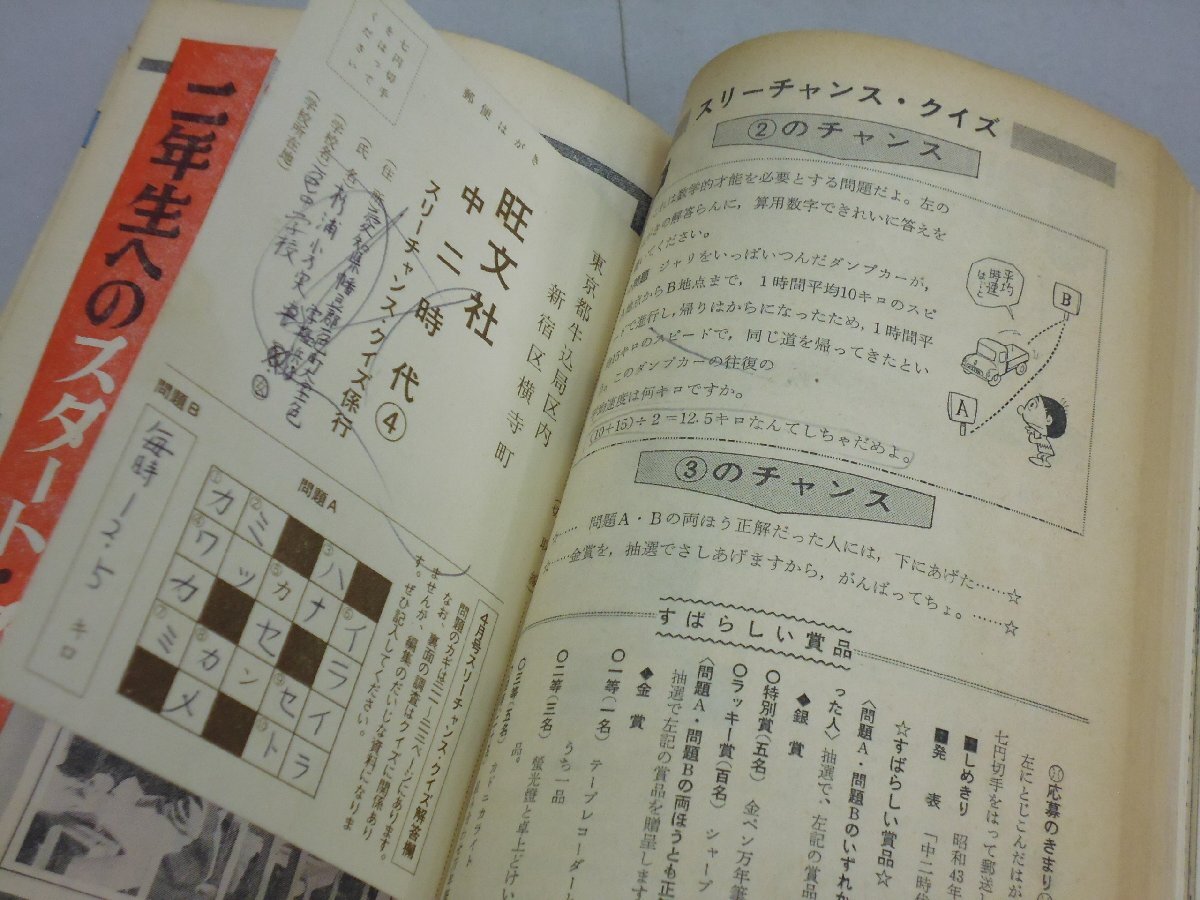 二年生へのスタート・
七円切手
をはって
ください
郵便はがき
東京都牛込局区内
新宿区横寺町
旺文社
中二時代④
スリーチャンス・クイズ係行
(住
(氏名)
(学校名)
(学校所在地)
問題B
毎時12.5
キロ
問題A
①カ ②ミ ③ハ
④ワ ッ ⑤カ ナ ⑥イ
カ セ ラ
⑦ミ ⑧カ ン ⑨セ イ
メ ⑩ト ラ
4月号スリーチャンス・クイズ解答欄
問題のカギは三二・三三ページにあります。
なお、裏面の調査はクイズに関係あり
ませんが、編集のだいじな資料になりま
す。ぜひ記入してください。
スリーチャンス・クイズ
②のチャンス
は数学的才能を必要とする問題だよ。左の
の解答らんに，算用数字できれいに答えを
てください。
ジャリをいっぱいつんだダンプカーが，
地点からB地点まで，1時間平均10キロのスピ
ドで進行し，帰りはからになったため，1時間平
15キロのスピードで，同じ道を帰ってきたとい
このダンプカーの往復の
速度は何キロですか。
(10+15)÷2＝12.5キロなんてしちゃだめよ。
平均
時速
は…と
B
A
③のチャンス
☆…… 問題A・Bの両ほう正解だった人には，下にあげた……☆
☆……金賞を，抽選でさしあげますから，がんばってちょ。……☆
すばらしい賞品
応募のきまり
左にとじこんだはが
七円切手をはって郵送し
■しめきり 昭和43年
■発 表 「中二時代
☆すばらしい賞品☆
〈問題A・問題Bのいずれか
った人〉抽選で、左記の賞品
◆銀 賞
○特別賞(五名) 金ペン万年筆
○ラッキー賞(百名) シャープ
〈問題A・問題Bの両ほうとも正
抽選で左記の賞品を贈呈します
◆金 賞
○一等(一名) テープレコーダー
うち一品
○二等(三名) 螢光燈と卓上とけい
品。